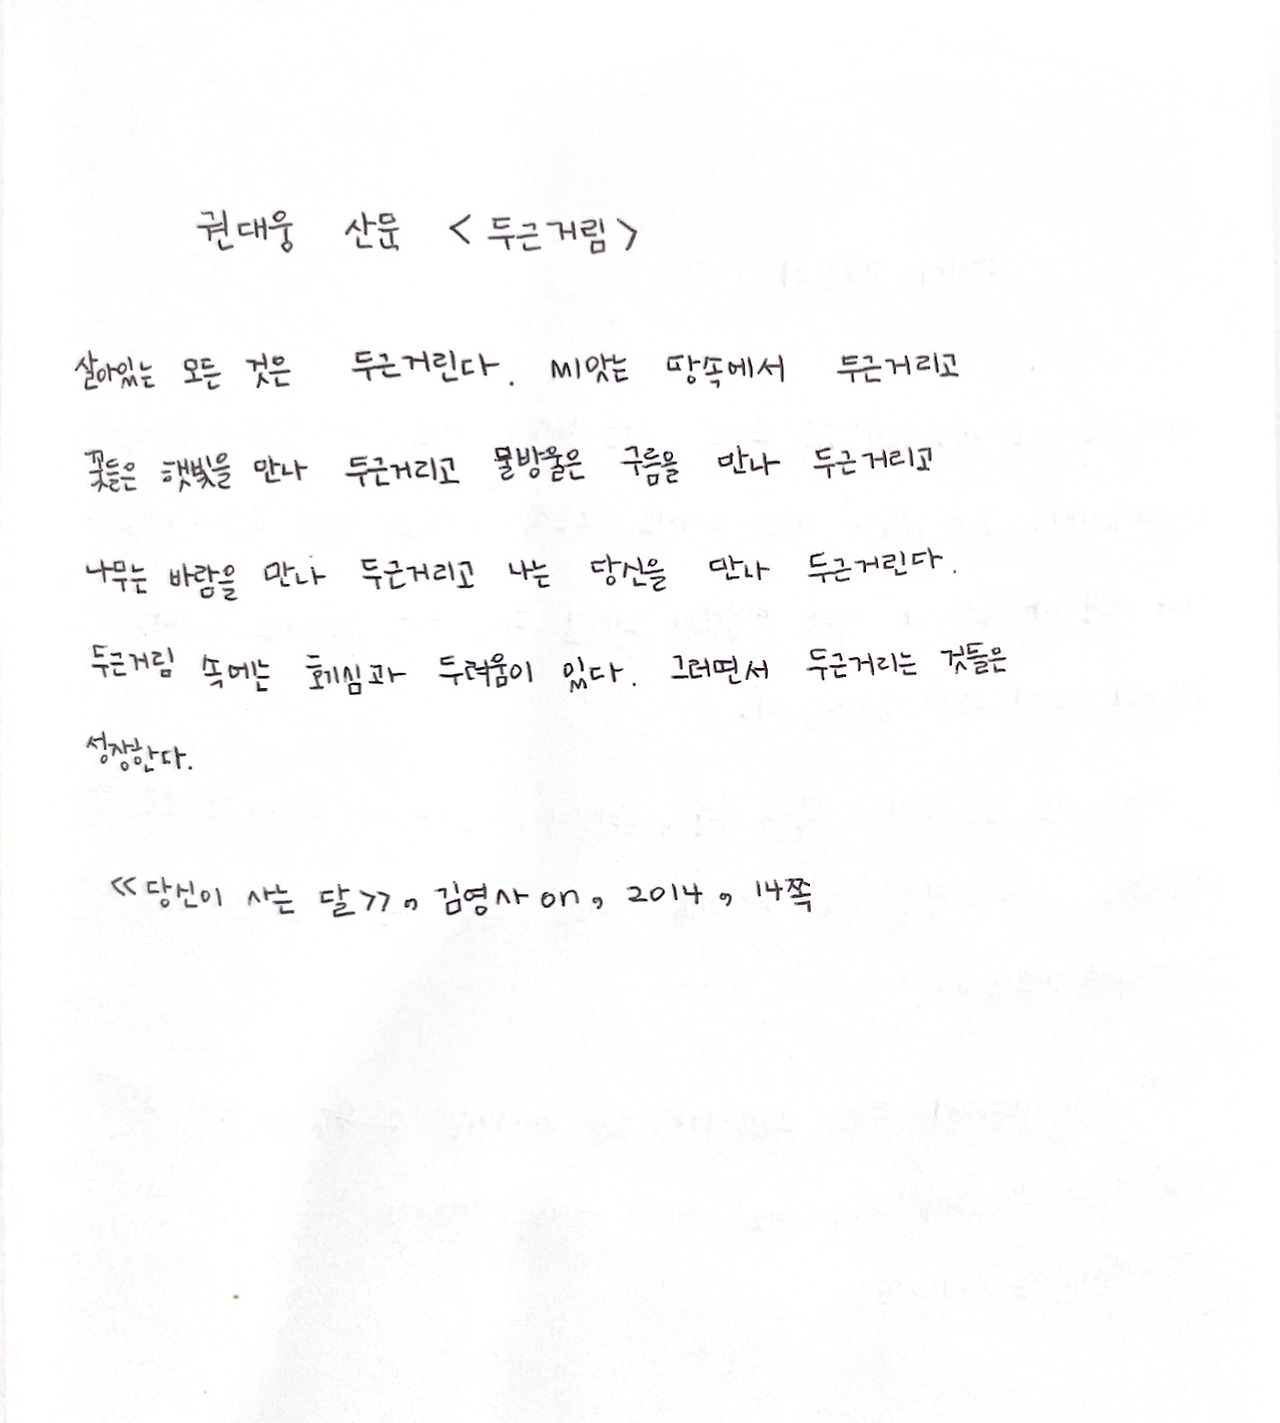 권대웅 산문 <두근거림>
살아있는 모든 것은 두근거린다. 씨앗는 땅속에서 두근거리고
꽃들은 햇빛을 만나 두근거리고 물방울은 구름을 만나 두근거리고
나무는 바람을 만나 두근거리고 나는 당신을 만나 두근거린다.
두근거림 속에는 호기심과 두려움이 있다. 그러면서 두근거리는 것들은
성장한다.
<<당신이 사는 달>>, 김영사on, 2014, 14쪽